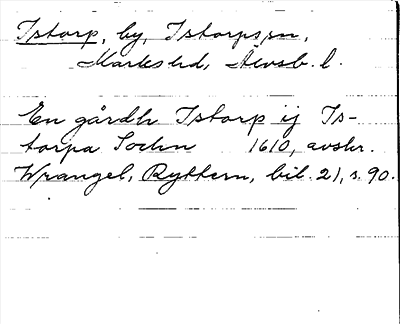 Istorp, by, Istorps sn,
Marks hd, Älvsb. l.
En gårdh Istorp ij Is-
torpa Sochn 1610, avskr.
Wrangel, Ryttern, bil. 21, s. 90.